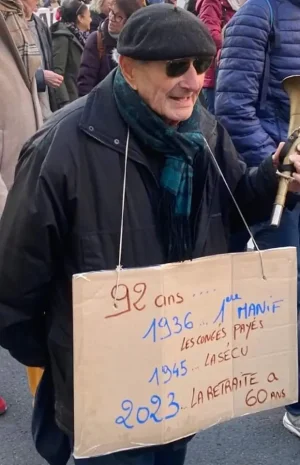 92 ans ....
1936... 1ère MANIF
LES CONGÉS PAYÉS
1945.. LA SÉCU
2023.. LA RETRAITE A
60 ANS